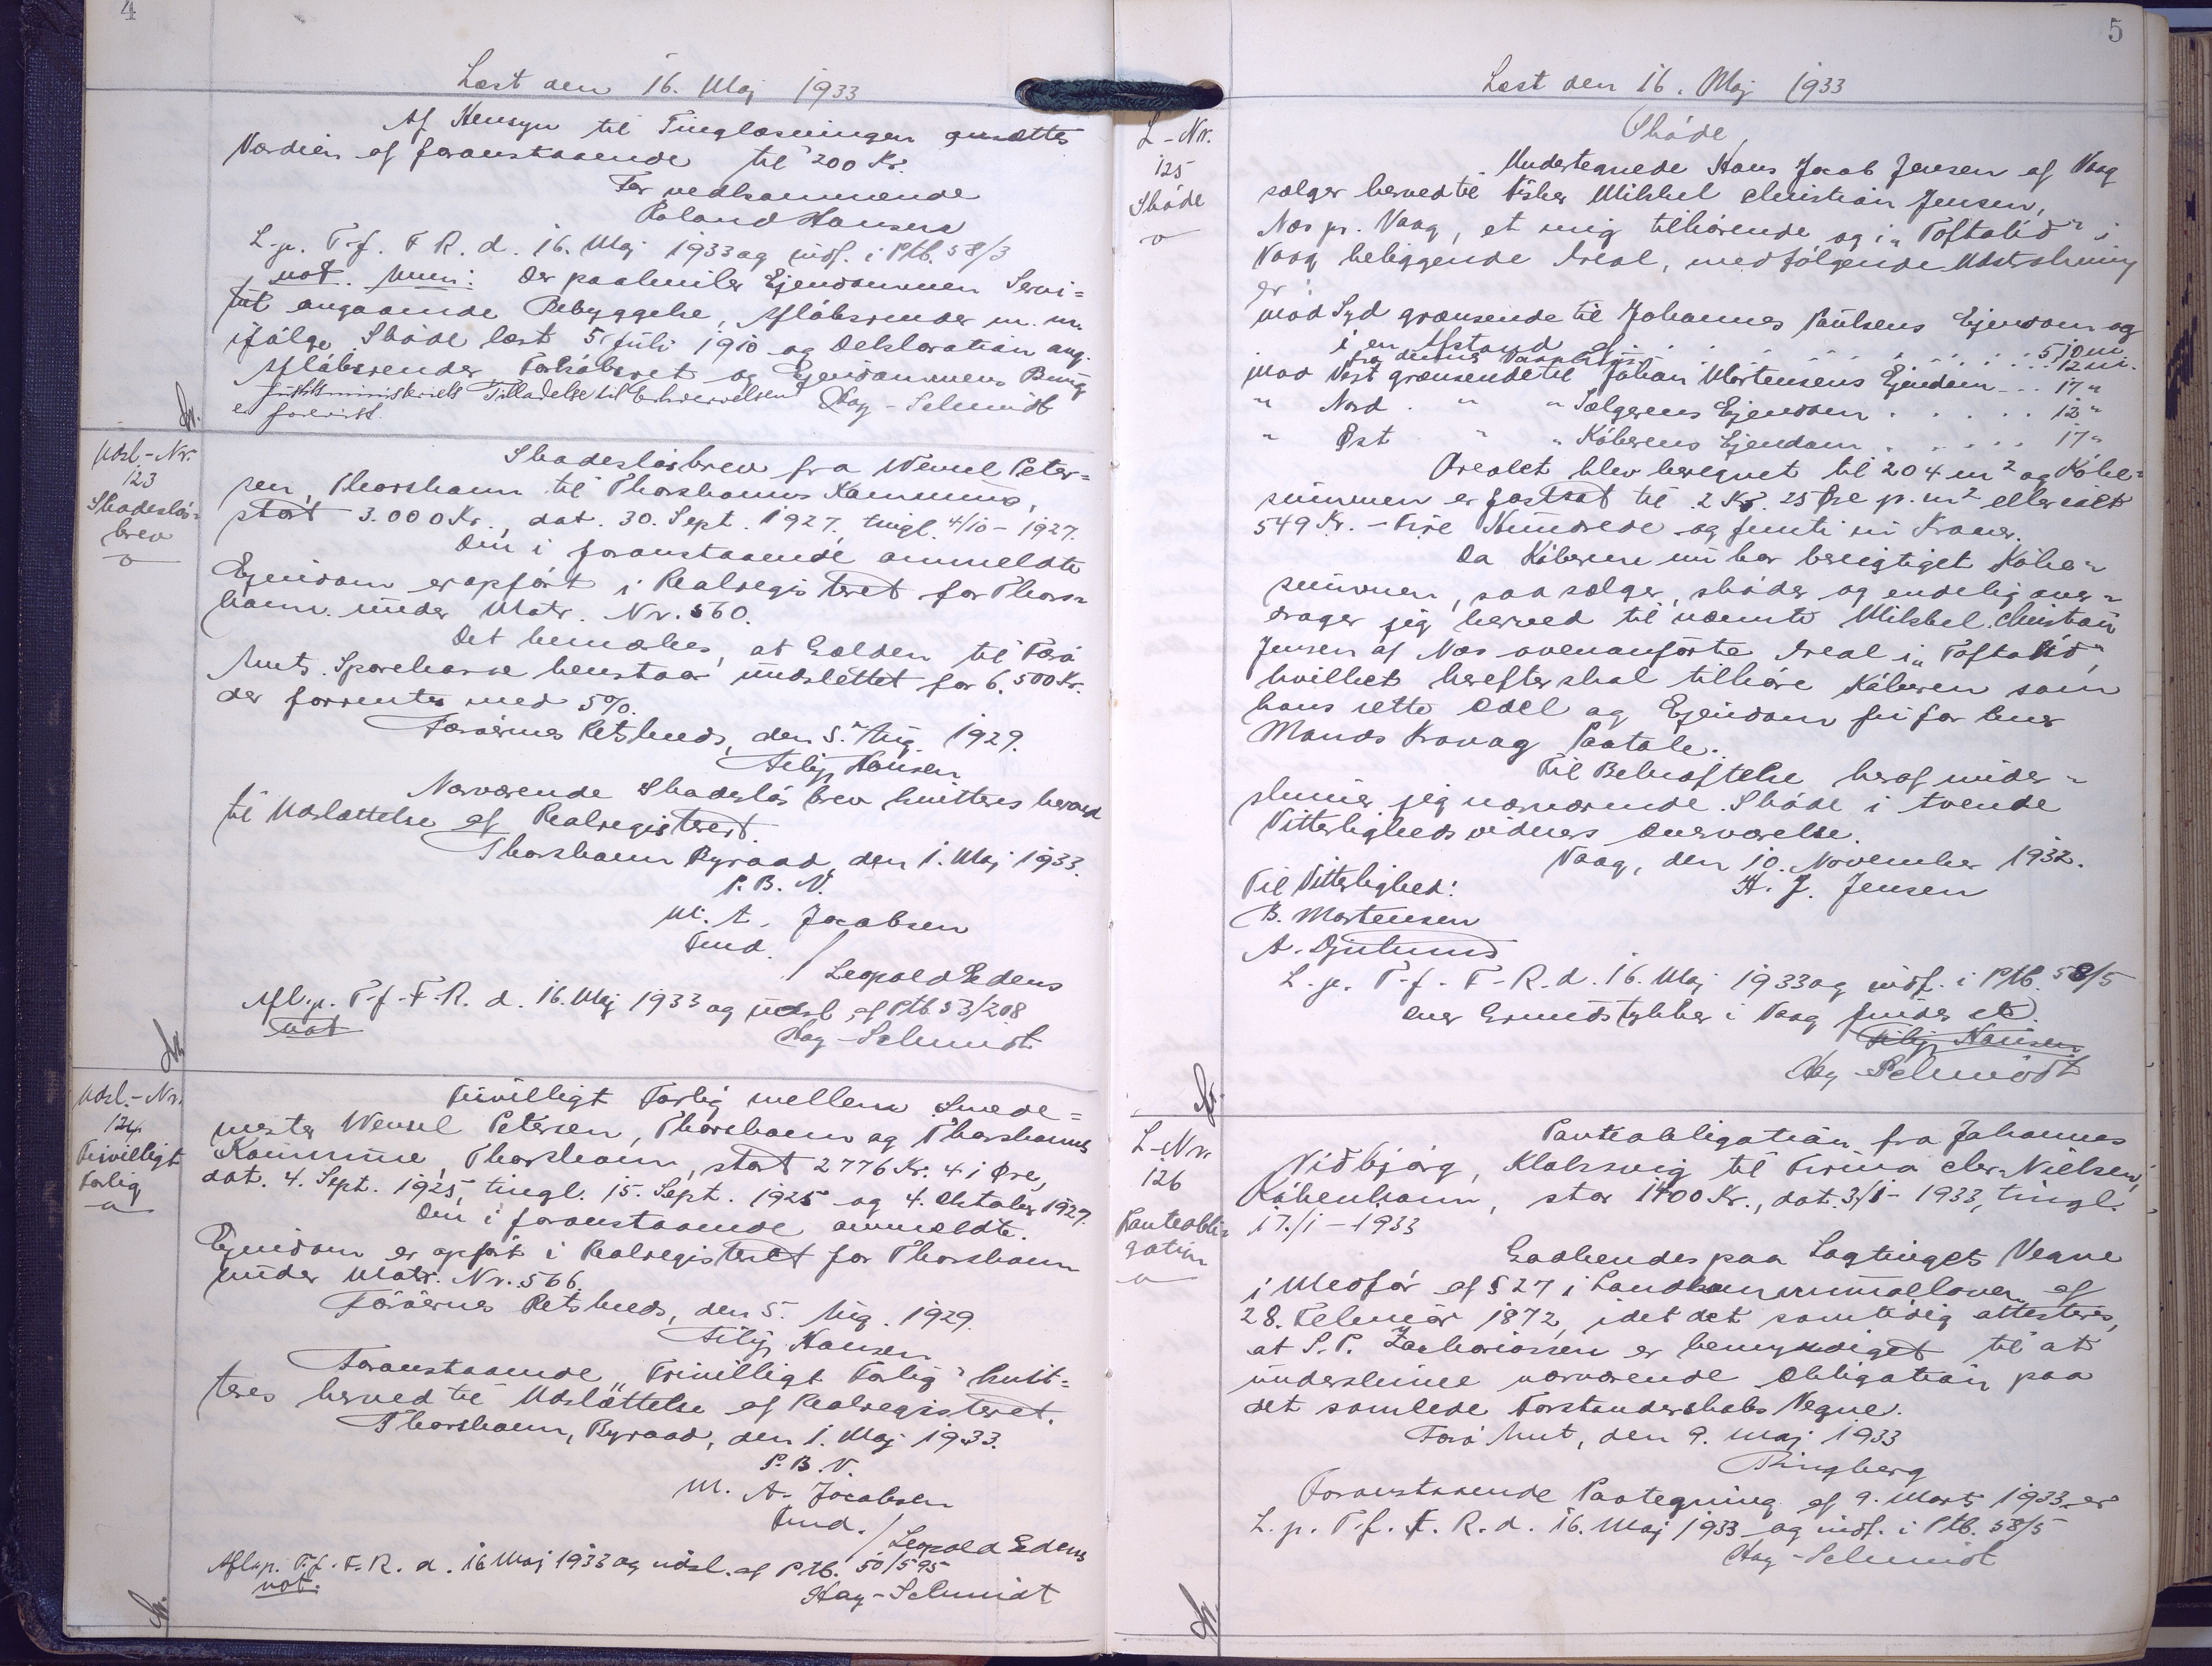 4
Læst den 16. Maj 1933
Af Hensyn til Tinglæsningen ansættes
Værdien af foranstaaende til 200 Kr.
For vedkommende
Poland Hansen
L. p. T. f. F R. d. 16. Maj 1933 og indf. i Ptb. 58/3
not. Anm: Der paahviler Ejendommen Servi=
tut angaaende Bebyggelse, Afløbsrender m. m.
ifølge Skøde læst 5 Juli 1910 og Deklaration ang.
Afløbsrender Forkøbsret og Ejendommens Brug
Justitsministeriets Tilladelse til Erhvervelsen
er forevist.
Hay-Schmidt
Udsl-Nr.
123
Skadesløs=
brev
Skadesløsbrev fra Wensel Peter=
sen, Thorshavn til Thorshavns Kommune,
stort 3.000 Kr., dat. 30. Sept. 1927, tingl. 4/10 - 1927.
Den i foranstaaende ommeldte
Ejendom er opført i Realregisteret for Thors=
havn under Matr. Nr. 560.
Det bemærkes, at Gælden til Færø
Amts Sparekasse henstaar uudslettet for 6.500 Kr.
der forrentes med 5%.
Færøernes Retskreds, den 5. Aug. 1929.
Filip Hansen
Nærværende Skadesløsbrev kvitteres herved
til Udslettelse af Realregisteret.
Thorshavn Byraad, den 1. Maj 1933.
P. B. V.
M. A. Jacobsen
Fmd. / Leopold Edens
Afl. p. T-f-F-R. d. 16. Maj 1933 og udsl. af Ptb. 53/208
not
Hay-Schmidt
Udsl.-Nr.
124
Frivilligt
Forlig
Frivilligt Forlig mellem Smede=
mester Wensel Petersen, Thorshavn og Thorshavns
Kommune, Thorshavn, stort 2776 Kr. 41 Øre,
dat. 4. Sept. 1925, tingl. 15. Sept. 1925 og 4. Oktober 1927.
Den i foranstaaende ommeldte
Ejendom er opført i Realregisteret for Thorshavn
under Matr. Nr. 566.
Færøernes Retskreds, den 5. Aug. 1929.
Filip Hansen
Foranstaaende „Frivilligt Forlig" kvit=
teres herved til Udslettelse af Realregisteret.
Thorshavn, Byraad, den 1. Maj 1933.
P. B. V.
M. A. Jacobsen
Fmd. / Leopold Edens
Afl. p. T. f. F. R. d. 16 Maj 1933 og udsl. af Ptb. 50/595
not.
Hay-Schmidt
5
Læst den 16. Maj 1933
L-Nr.
125
Skøde
Skøde
Undertegnede Hans Jacob Jensen af Vaag
sælger herved til Fisker Mikkel Christian Jensen,
Næs pr. Vaag, et mig tilhørende og i „Toftalið" i
Vaag beliggende Areal, med følgende Udstrækning
er:
mod Syd grænsende til Johannes Poulsens Ejendom og
i en Afstand af 5,10 m
fra dennes 12 m.
mod Vest grænsende til Johan Mortensens Ejendom 17 "
" Nord " " Sælgerens Ejendom 12 "
" Øst " " Køberens Ejendom 17 "
Arealet blev beregnet til 204 m² og Købe=
summen er fastsat til 2 Kr. 25 Øre p. m² eller ialt
549 Kr. - Fire Hundrede og femti ni Kroner.
Da Køberen nu har berigtiget Købe=
summen, saa sælger, skøder og endelig over=
drager jeg herved til nævnte Mikkel Christian
Jensen af Næs ovenanførte Areal i „Toftalið",
hvilket herefter skal tilhøre Køberen som
hans rette Odel og Ejendom fri for hver
Mands Krav og Paatale.
Til Bekræftelse heraf under=
skriver jeg nærværende Skøde i tvende
Vitterlighedsvidners Overværelse.
Vaag, den 10. November 1932.
Til Vitterlighed: H. J. Jensen
B. Mortensen
A. Djurhuus
L. p. T-f-F-R. d. 16. Maj 1933 og indf. i Ptb. 58/5
Over Grundstykker i Vaag findes et
Filip Hansen
Hay-Schmidt
L-Nr.
126
Panteobli=
gation
Panteobligation fra Johannes
Viðbjørg, Klaksvig til Firma Chr. Nielsen,
København, stor 1400 Kr., dat. 3/1 - 1933, tingl.
17./1 - 1933
Godkendes paa Lagtingets Vegne
i Medfør af § 27 i Landkommunalloven af
28. Februar 1872, idet det samtidig attesteres,
at S. P. Zachariassen er bemyndiget til at
underskrive nærværende Obligation paa
det samlede Forstanderskabs Vegne.
Færø Amt, den 9. Maj 1933
Ringberg
Foranstaaende Paategning af 9. Marts 1933 er
L. p. T. f. F. R. d. 16. Maj 1933 og indf. i Ptb. 58/5
Hay-Schmidt